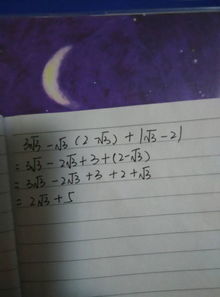 3√3 - √3 (2 - √3) + |√3 - 2|
= 3√3 - 2√3 + 3 + (2 - √3)
= 3√3 - 2√3 + 3 + 2 + √3
= 2√3 + 5